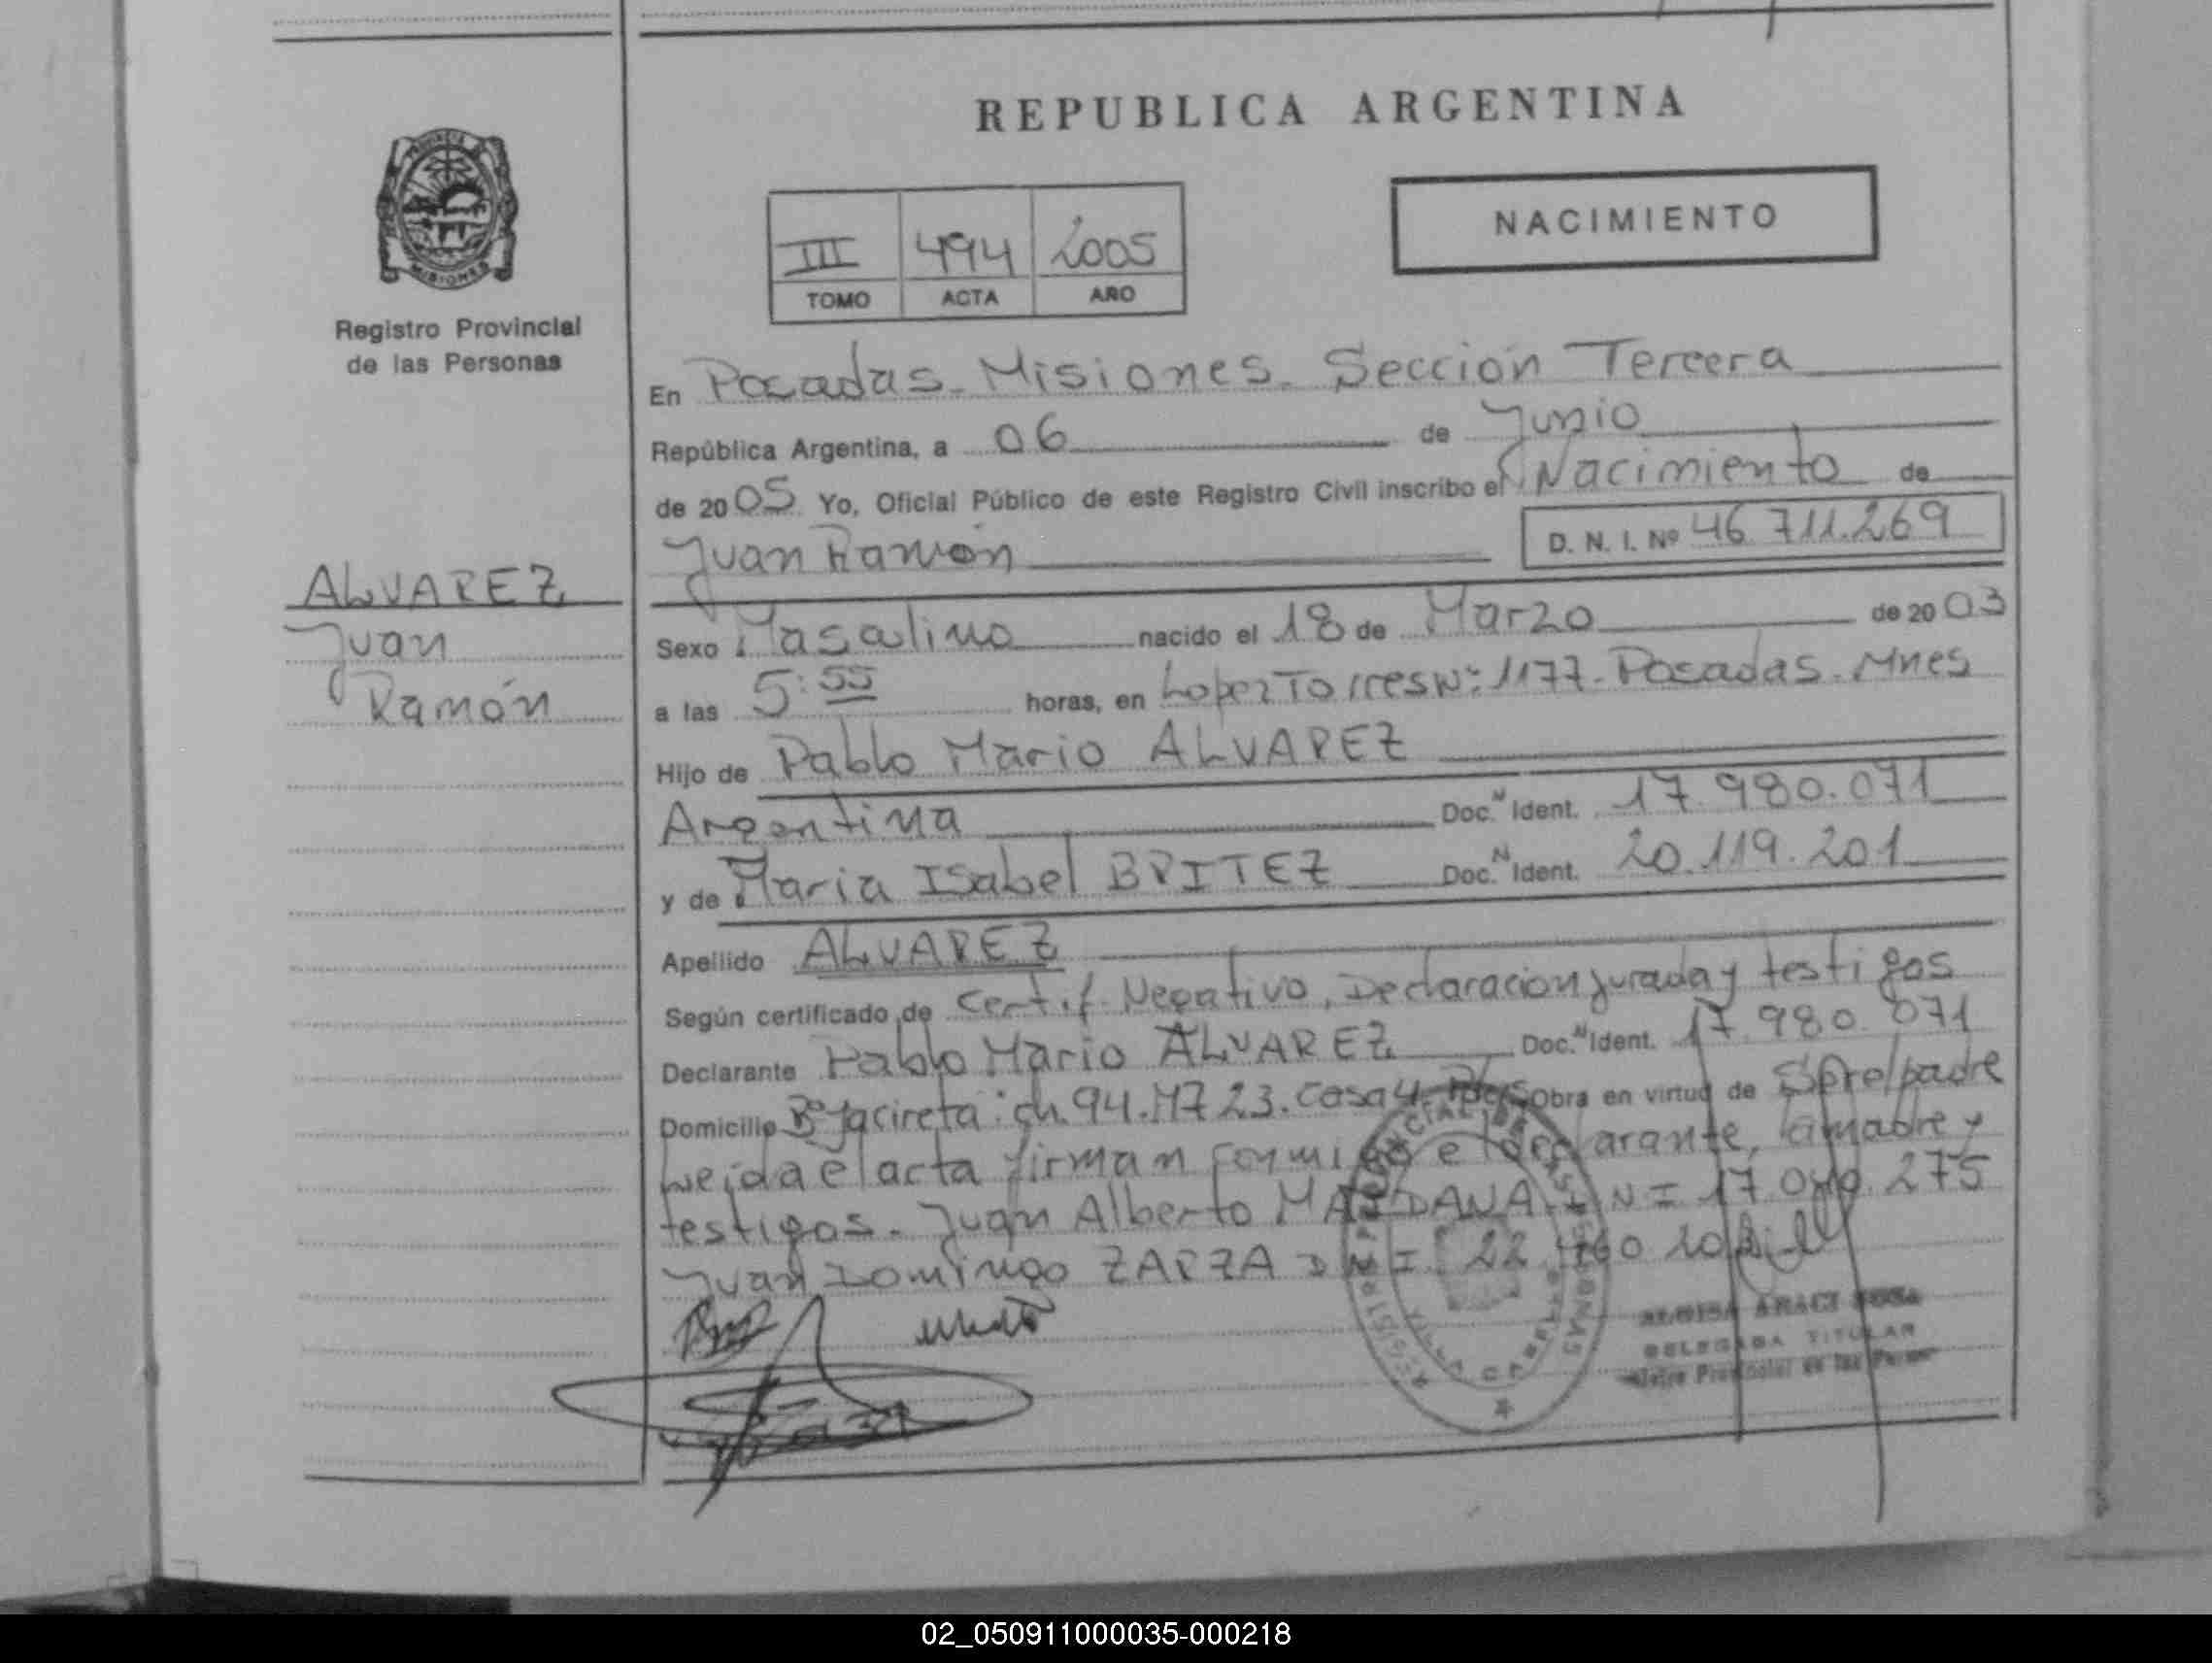 REPUBLICA ARGENTINA
NACIMIENTO
III 494 2005
TOMO ACTA AÑO
Registro Provincial
de las Personas
En Posadas. Misiones. Sección Tercera
República Argentina, a 06 de Junio
de 2005 Yo, Oficial Público de este Registro Civil inscribo el Nacimiento de
Juan Ramón D. N. I. Nº 46.711.269
ALVAREZ
Juan
Ramón
Sexo Masculino nacido el 18 de Marzo de 2003
a las 5:55 horas, en Lopez Torres Nº 1177. Posadas. Mnes
Hijo de Pablo Mario ALVAREZ
Argentina Doc. N Ident. 17.980.071
y de Maria Isabel BRITEZ Doc. N Ident. 20.119.201
Apellido ALVAREZ
Según certificado de Certif. Negativo, Declaracion Jurada y testigos
Declarante Pablo Mario ALVAREZ Doc. N Ident. 17.980.071
Domicilio Bº Yacireta: ch. 94. MZ 23. Casa 4. Obra en virtud de Ser el padre
Leida el acta firman conmigo el declarante, la madre y
testigos. Juan Alberto MAIDANA DNI 17.275
Juan Domingo ZARZA DNI 22
DELEGADA TITULAR
02_050911000035-000218